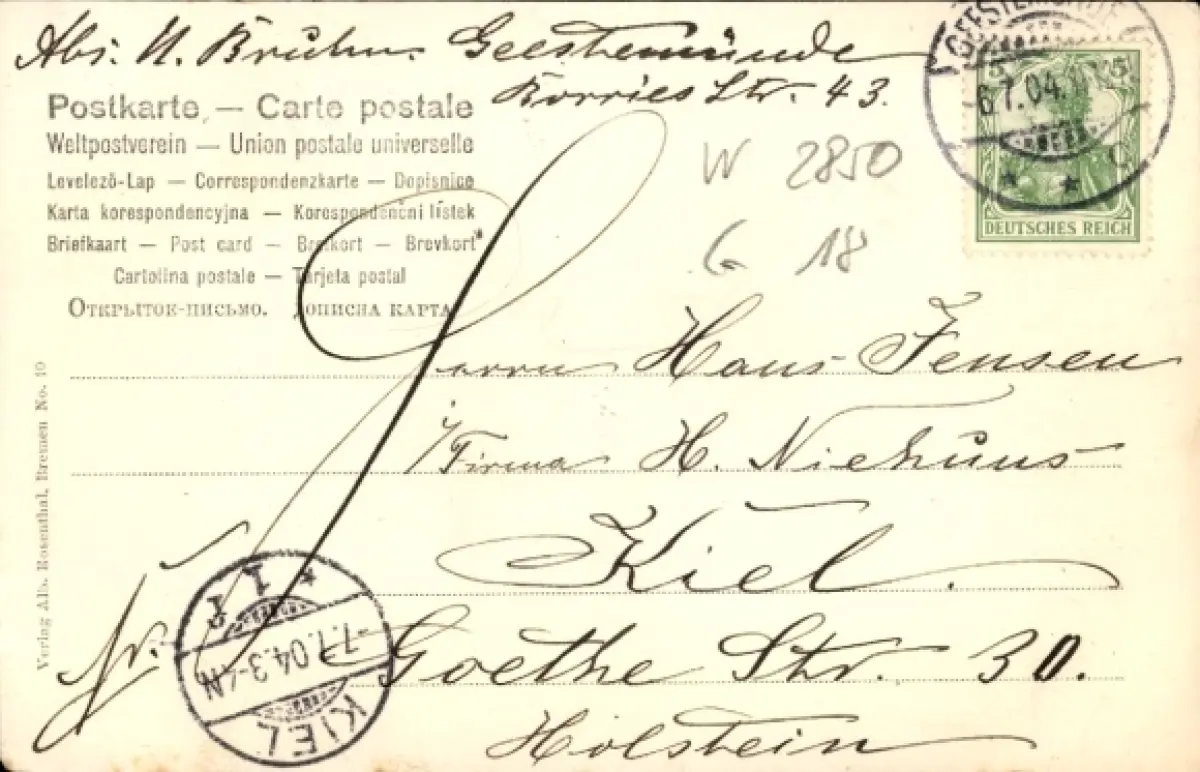 Abs: N. Bruhn. Geestemünde
Borries Str. 43.
Postkarte — Carte postale
Weltpostverein — Union postale universelle
Levelező-Lap — Correspondenzkarte — Dopisnice
Karta korespondencyjna — Korespondenční lístek
Briefkaart — Post card — Brefkort — Brevkort
Cartolina postale — Tarjeta postal
Открытое-письмо. Дописна карта
W 2850
G 18
GEESTEMÜNDE
6.7.04.
5
DEUTSCHES REICH
Herrn Hans Jensen
i/Firma H. Niehuus
Kiel.
Goethe Str. 30.
Holstein
Verlag Alb. Rosenthal, Bremen No. 10
KIEL
-7.7.04.3-4N
1